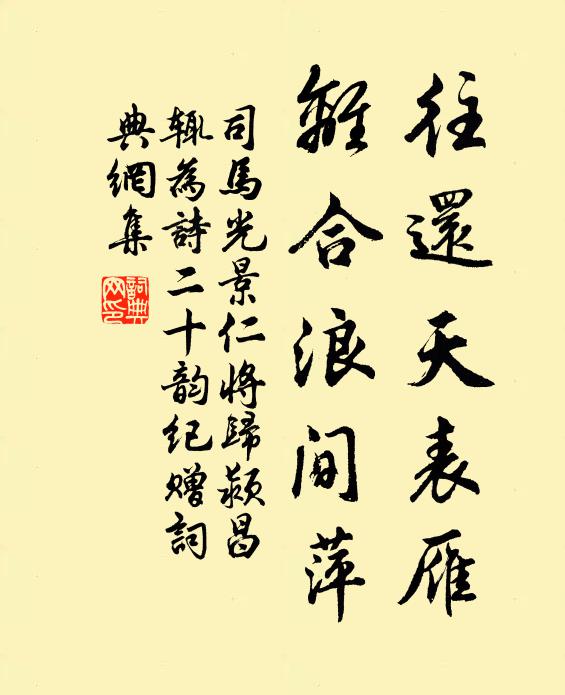 往還天表雁
離合浪間萍
司馬光景仁將歸潁昌
輒為詩二十韵紀贈詞
典網集
詞典
网印